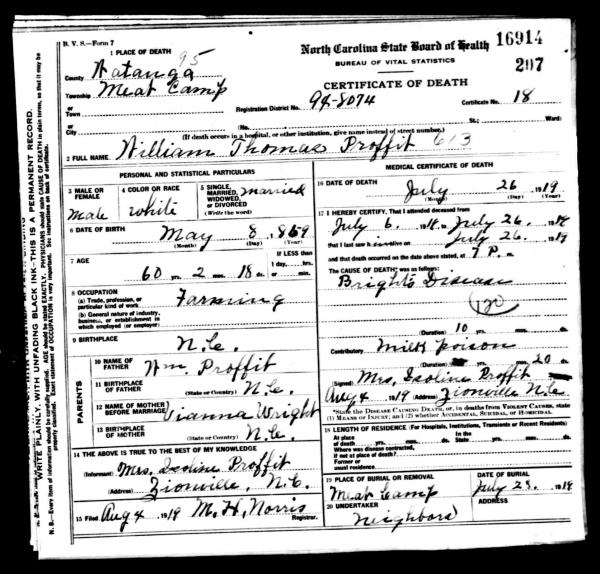 B. V. S.—Form 7
North Carolina State Board of Health 16914
BUREAU OF VITAL STATISTICS 207
CERTIFICATE OF DEATH
1 PLACE OF DEATH 95
County Watanga
Township Meat Camp
or
Town
Registration District No. 94-8074 Certificate No. 18
or
City (No. St.; Ward)
(If death occurs in a hospital, or other institution, give name instead of street number.)
2 FULL NAME William Thomas Proffit 613
PERSONAL AND STATISTICAL PARTICULARS
3 MALE OR FEMALE Male
4 COLOR OR RACE White
5 SINGLE, MARRIED, WIDOWED, OR DIVORCED (Write the word) married
6 DATE OF BIRTH May 8, 1859
(Month) (Day) (Year)
7 AGE 60 yrs. 2 mos. 18 ds.
If LESS than 1 day, hrs. or min.
8 OCCUPATION
(a) Trade, profession, or particular kind of work Farming
(b) General nature of industry, business, or establishment in which employed (or employer)
9 BIRTHPLACE N.C.
PARENTS
10 NAME OF FATHER Wm. Proffit
11 BIRTHPLACE OF FATHER (State or Country) N.C.
12 NAME OF MOTHER BEFORE MARRIAGE Vianna Wright
13 BIRTHPLACE OF MOTHER (State or Country) N.C.
14 THE ABOVE IS TRUE TO THE BEST OF MY KNOWLEDGE
(Informant) Mrs. Isoline Proffit
(Address) Zionville, N.C.
15 Filed Aug 4 1919 M. H. Norris
Registrar.
MEDICAL CERTIFICATE OF DEATH
16 DATE OF DEATH July 26 1919
(Month) (Day) (Year)
17 I HEREBY CERTIFY, That I attended deceased from
July 6, 1919 to July 26, 1919
that I last saw h alive on July 26, 1919
and that death occurred on the date above stated, at 7 P. m.
The CAUSE OF DEATH* was as follows:
Brights Disease
120
(Duration) 10 yrs. mos. ds.
Contributory Milk poison
(Duration) mos. 20 ds.
(Signed) Mrs. Isoline Proffit
Aug 4, 1919 Zionville N.C.
*State the DISEASE CAUSING DEATH, or, in deaths from VIOLENT CAUSES, state (1) MEANS OF INJURY; and (2) whether ACCIDENTAL, SUICIDAL, OR HOMICIDAL.
18 LENGTH OF RESIDENCE (For Hospitals, Institutions, Transients or Recent Residents)
At place of death yrs. mos. ds. In the State yrs. mos. ds.
Where was disease contracted, if not at place of death?
Former or usual residence
19 PLACE OF BURIAL OR REMOVAL Meat Camp
DATE OF BURIAL July 28, 1919
20 UNDERTAKER Neighbors
ADDRESS
WRITE PLAINLY, WITH UNFADING BLACK INK—THIS IS A PERMANENT RECORD.
N. B.—Every item of information should be carefully supplied. AGE should be stated EXACTLY. PHYSICIANS should state CAUSE OF DEATH in plain terms, so that it may be properly classified. Exact statement of OCCUPATION is very important. See instructions on back of certificate.